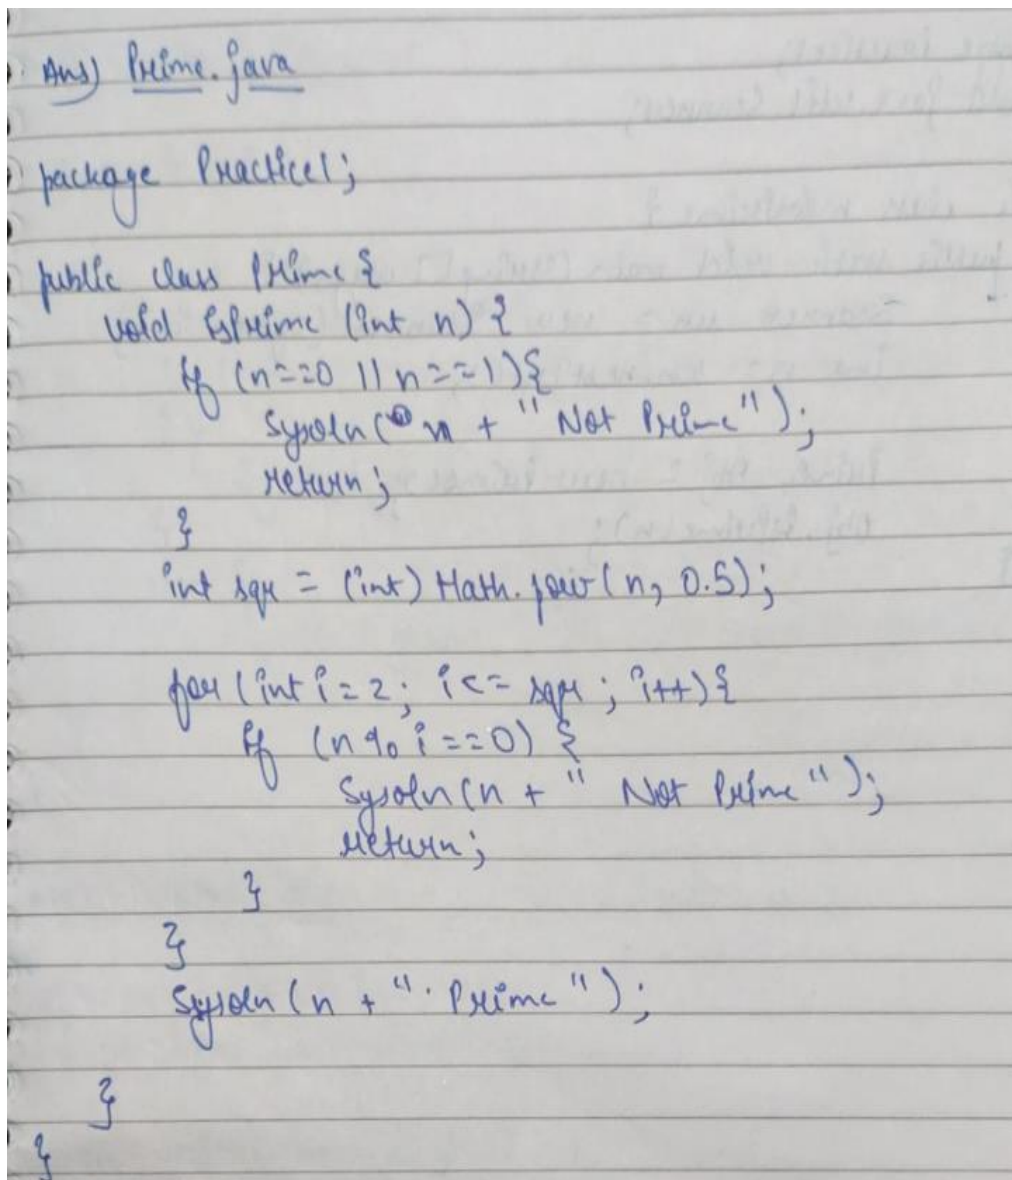 Ans) Prime.java
package Practice1;
public class Prime {
void isPrime (int n) {
if (n==0 || n==1) {
Sysoln( n + " Not Prime");
return;
}
int sqr = (int) Math.pow(n, 0.5);
for (int i=2; i<= sqr; i++) {
if (n%i==0) {
Sysoln(n + " Not Prime");
return;
}
}
Sysoln (n + " . Prime");
}
}